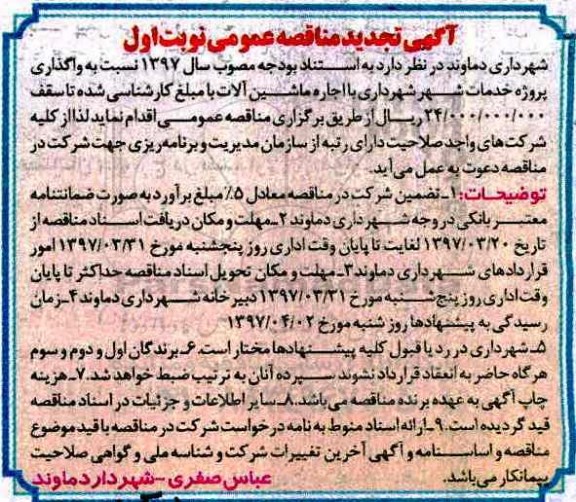 آگهی تجدید مناقصه عمومی نوبت اول
شهرداری دماوند در نظر دارد به استناد بودجه مصوب سال ۱۳۹۷ نسبت به واگذاری
پروژه خدمات شهر شهرداری با اجاره ماشین آلات با مبلغ کارشناسی شده تا سقف
۲۴/۰۰۰/۰۰۰/۰۰۰ ریال از طریق برگزاری مناقصه عمومی اقدام نماید لذا از کلیه
شرکت‌های واجد صلاحیت دارای رتبه از سازمان مدیریت و برنامه‌ریزی جهت شرکت در
مناقصه دعوت به عمل می‌آید.
توضیحات: ۱ـ تضمین شرکت در مناقصه معادل ۵٪ مبلغ برآورد به صورت ضمانتنامه
معتبر بانکی در وجه شهرداری دماوند ۲ـ مهلت و مکان دریافت اسناد مناقصه از
تاریخ ۱۳۹۷/۰۳/۲۰ لغایت تا پایان وقت اداری روز پنجشنبه مورخ ۱۳۹۷/۰۳/۳۱ امور
قراردادهای شهرداری دماوند ۳ـ مهلت و مکان تحویل اسناد مناقصه حداکثر تا پایان
وقت اداری روز پنج‌شنبه مورخ ۱۳۹۷/۰۳/۳۱ دبیرخانه شهرداری دماوند ۴ـ زمان
رسیدگی به پیشنهادها روز شنبه مورخ ۱۳۹۷/۰۴/۰۲
۵ـ شهرداری در رد یا قبول کلیه پیشنهادها مختار است. ۶ـ برندگان اول و دوم و سوم
هرگاه حاضر به انعقاد قرارداد نشوند سپرده آنان به ترتیب ضبط خواهد شد. ۷ـ هزینه
چاپ آگهی به عهده برنده مناقصه می‌باشد. ۸ـ سایر اطلاعات و جزئیات در اسناد مناقصه
قید گردیده است. ۹ـ ارائه اسناد منوط به نامه درخواست شرکت در مناقصه با قید موضوع
مناقصه و اساسنامه و آگهی آخرین تغییرات شرکت و شناسه ملی و گواهی صلاحیت
پیمانکار می‌باشد.
عباس صفری - شهردار دماوند